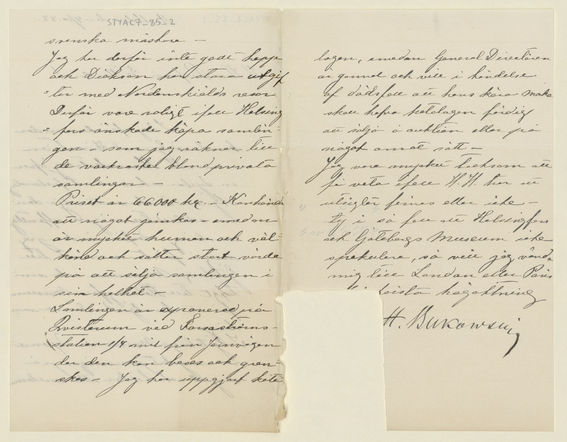 STYAC7_85_2
svenska mästare –
Jag har derför inte godt hopp
och Dickson har stora utgif-
ter med Nordenskiölds resa
Derför vore roligt ifall Helsing
fors önskade köpa samlin-
gen som jag räknar till
de vackraste bland privata
samlingar –
Priset är 66 000 kr. –
att något prutas –
är mycket human och väl-
känd och sätter stort värde
på att sälja samlingen i
sin helhet –
Samlingen är
vid
station 1/4 mil från Jernvägen
der den kan beses och gran-
skas – Jag har uppgjort kata
logen, emedan General Direktören
är gammal och vill i händelse
af dödsfall att hans kära maka
skall hafva katalogen färdig
att sälja å auktion eller på
något annat sätt –
Jag vore mycket tacksam att
få veta ifall H.H. har en
utsigter finnes eller icke –
ty i så fall att Helsingfors
och Göteborgs Museum icke
spekulera, så vill jag vända
mig till London eller Paris
högaktning
H. Bukowski